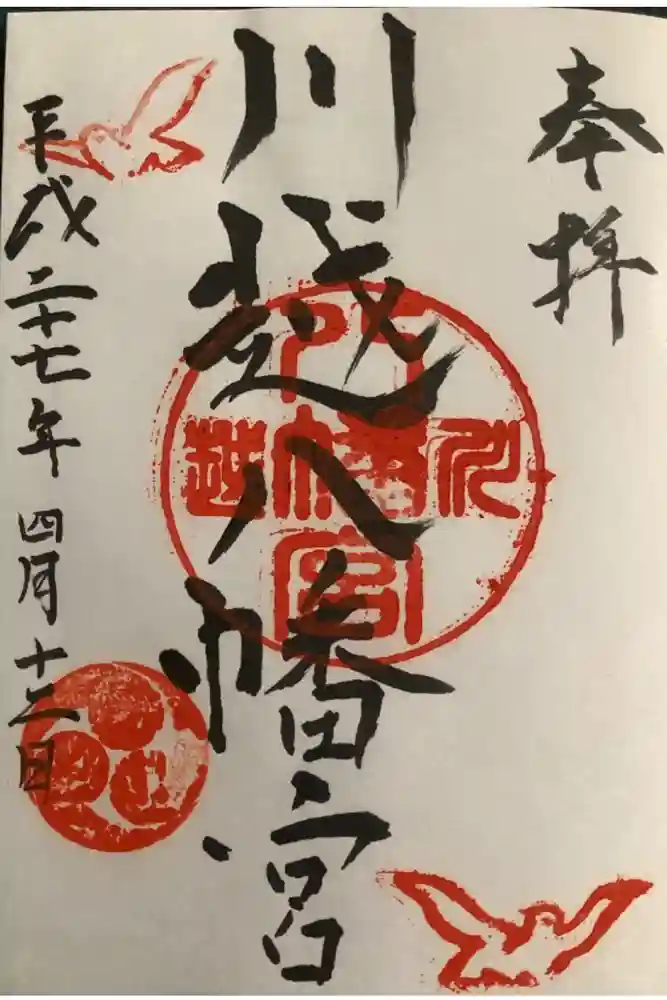 奉拝
川越八幡宮
八幡宮
川
越
平成二十七年四月十二日